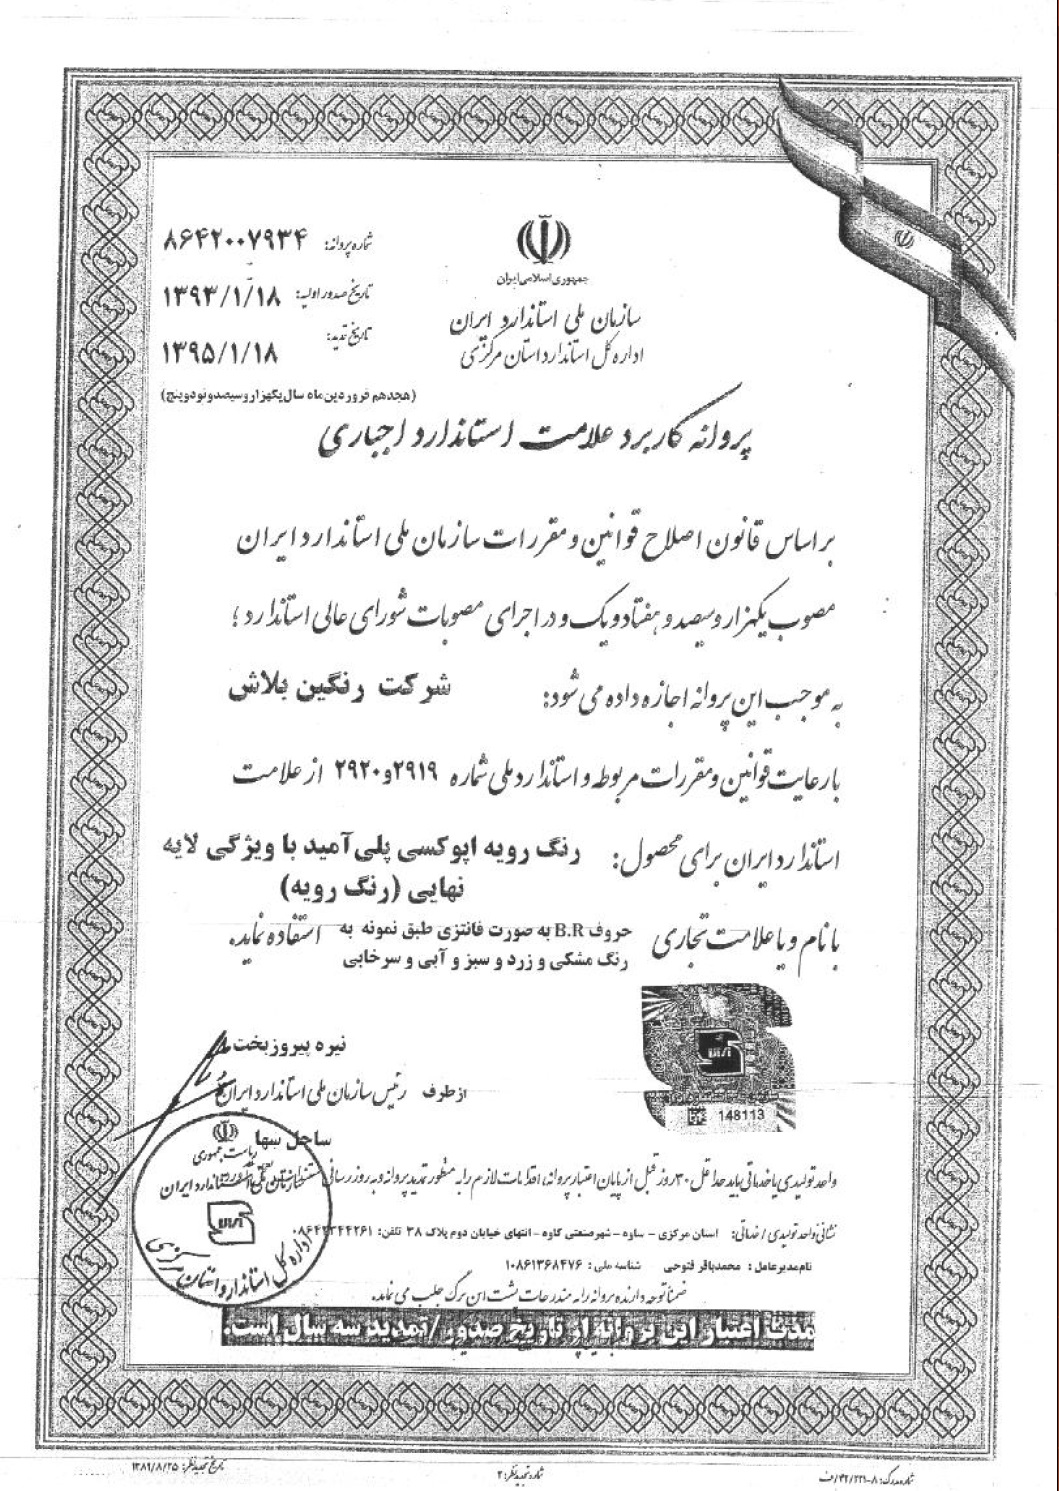 جمهوری اسلامی ایران
سازمان ملی استاندارد ایران
اداره کل استاندارد استان مرکزی
شماره پروانه: ۸۶۴۲۰۰۷۹۳۴
تاریخ صدور اولیه: ۱۳۹۳/۱/۱۸
تاریخ تمدید: ۱۳۹۵/۱/۱۸
(هجدهم فروردین ماه سال یکهزار وسیصدونودوپنج)
پروانه کاربرد علامت استاندارد اجباری
بر اساس قانون اصلاح قوانین و مقررات سازمان ملی استاندارد ایران
مصوب یکهزار و سیصد و هفتاد و یک و در اجرای مصوبات شورای عالی استاندارد ؛
به موجب این پروانه اجازه داده می شود: شرکت رنگین بلاش
با رعایت قوانین و مقررات مربوطه و استاندارد ملی شماره ۲۹۱۹و۲۹۲۰ از علامت
استاندارد ایران برای محصول: رنگ رویه اپوکسی پلی آمید با ویژگی لایه
نهایی (رنگ رویه)
با نام و یا علامت تجاری حروف B.R به صورت فانتزی طبق نمونه به استفاده نماید.
رنگ مشکی و زرد و سبز و آبی و سرخابی
148113
نیره پیروزبخت
از طرف رئیس سازمان ملی استاندارد ایران
ساحل سها
ریاست جمهوری
اداره کل استاندارد استان مرکزی
واحد تولیدی یا خدماتی باید حداقل ۳۰ روز قبل از پایان اعتبار پروانه، اقدامات لازم را به منظور تمدید پروانه و به روز رسانی
نشانی واحد تولیدی / خدماتی: استان مرکزی - ساوه - شهرصنعتی کاوه - انتهای خیابان دوم پلاک ۳۸ تلفن: ۰۸۶۴۲۳۴۴۲۶۱
نام مدیر عامل: محمدباقر فتوحی شناسه ملی: ۱۰۸۶۱۳۶۸۴۷۶
ضمنا توجه دارنده پروانه را به مندرجات پشت این برگ جلب می نماید.
مدت اعتبار این پروانه از تاریخ صدور /تمدید سه سال است.
شماره مدرک: ف/۴۲/۲۲۱-۸
شماره تجدید نظر: ۲
تاریخ تجدید نظر: ۱۳۸۹/۸/۲۵